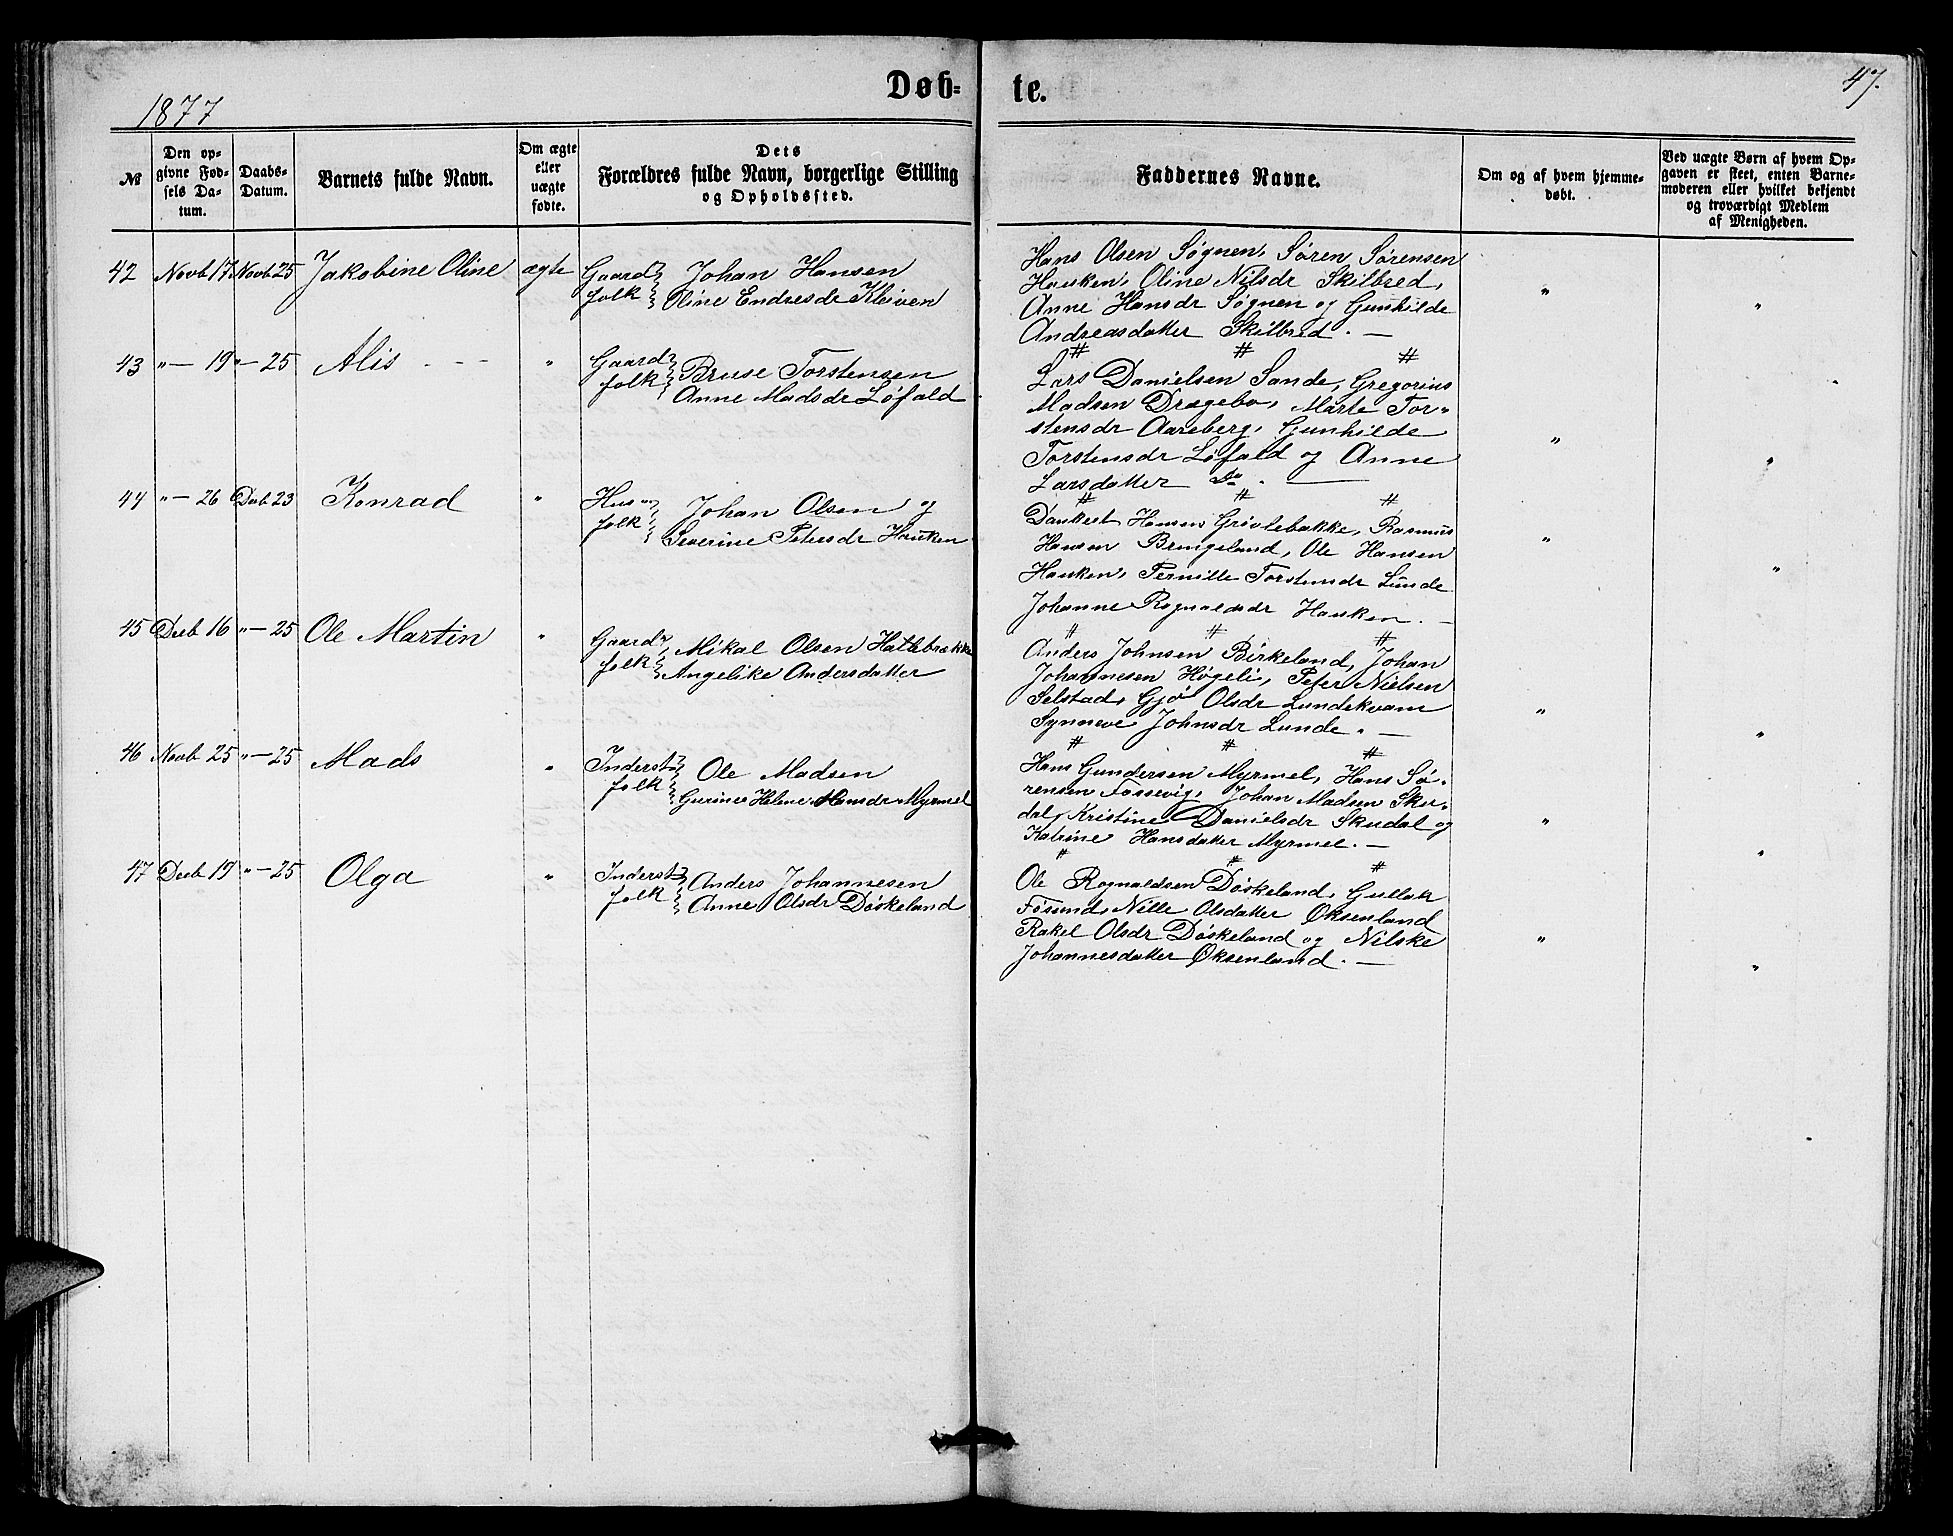 1877
Døb-
te.
47.
№
Den op-
givne Fød-
sels Da-
tum.
Daabs-
Datum.
Barnets fulde Navn.
Om ægte
eller
uægte
fødte.
Dets
Forældres fulde Navn, borgerlige Stilling
og Opholdssted.
Faddernes Navne.
Om og af hvem hjemme-
døbt.
Ved uægte Børn af hvem Op-
gaven er skeet, enten Barne-
moderen eller hvilket bekjendt
og troværdigt Medlem
af Menigheden.
42 Novb 17 Novb 25 Jakobine Oline ægte Gaard Johan Hansen
folk Oline Endresdr Kleiven
Hans Olsen Søgnen, Søren Sørensen
Hauken, Oline Nilsdr Skilbred,
Anne Hansdr Søgnen og Gunhilde
Andreasdatter Skilbred. —
" "
43 " — 19 " — 25 Alis - - " Gaard Bruse Torstensen
folk Anne Madsdr Løfald
# # #
Lars Danielsen Sande, Gregorius
Madsen Dragebø, Marte Tor-
stensdr Aareberg, Gunhilde
Torstensdr Løfald og Anne
Larsdatter Do. —
" "
44 " — 26 Deb 23 Konrad " Hus Johan Olsen og
folk Severine Petersdr Hauken
# # #
Dankert Hansen Grøvlebakke, Rasmus
Hansen Bringeland, Ole Hansen
Hauken, Pernille Torstensdr Lunde
Johanne Rognaldsdr Hauken. —
" "
45 Deb 16 " — 25 Ole Martin " Gaard Mikal Olsen Hatlebrække
folk Angelike Andersdatter
# # #
Anders Johnsen Birkeland, Johan
Johannesen Høgeli, Peter Nielsen
Selstad, Gjø Olsdr Lundekvam
Synneve Johnsdr Lunde. —
" "
46 Novb 25 " — 25 Mads " Inderst Ole Madsen
folk Gurine Helene Hansdr Myrmel
# # #
Hans Gundersen Myrmel, Hans Sø-
rensen Fossevig, Johan Madsen Sku-
dal, Kristine Danielsdr Skudal og
Katrine Hansdatter Myrmel. —
" "
47 Deb 19 " — 25 Olga " Inderst Anders Johannesen
folk Anne Olsdr Døskeland
# # #
Ole Rognaldsen Døskeland, Gullak
Førsund, Nille Olsdatter Øksenland
Rakel Olsdr Døskeland og Nilske
Johannesdatter Øksenland. —
" "